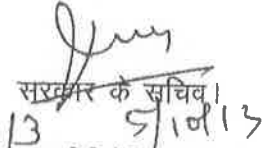 सरकार के सचिव।
13 5/10/13